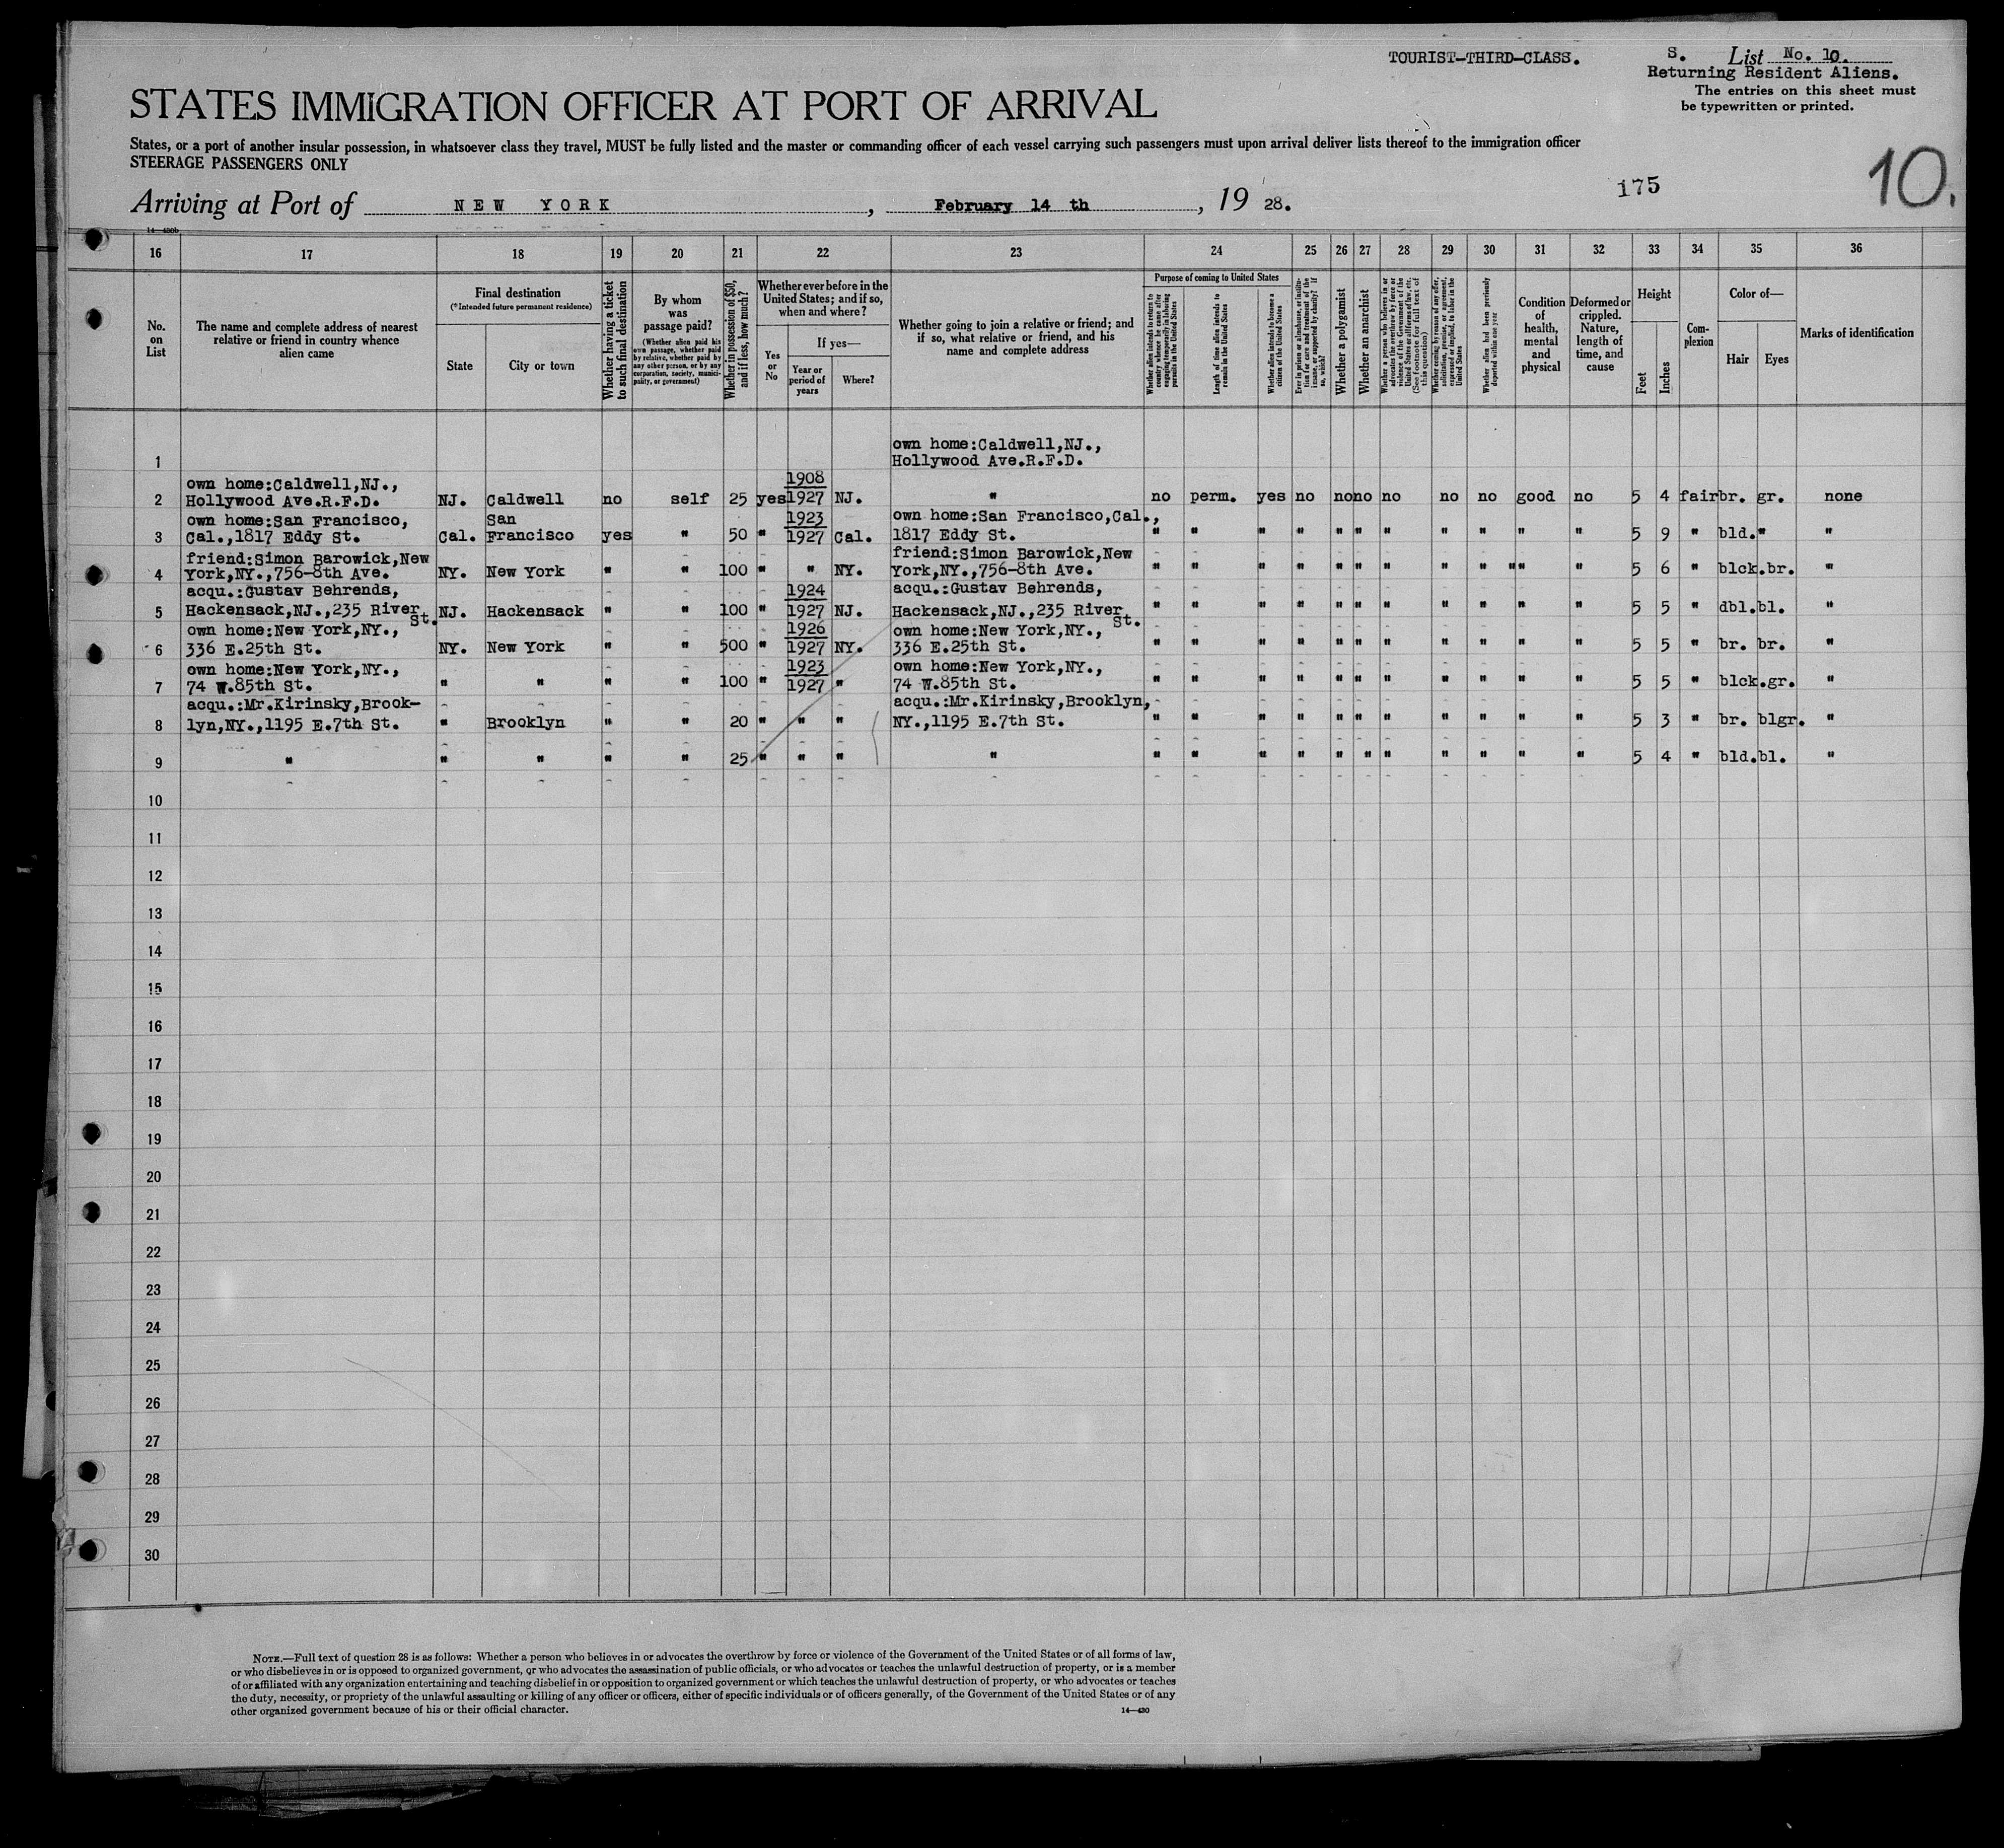 TOURIST-THIRD-CLASS.
S. List No. 10.
Returning Resident Aliens.
The entries on this sheet must
be typewritten or printed.
STATES IMMIGRATION OFFICER AT PORT OF ARRIVAL
States, or a port of another insular possession, in whatsoever class they travel, MUST be fully listed and the master or commanding officer of each vessel carrying such passengers must upon arrival deliver lists thereof to the immigration officer
STEERAGE PASSENGERS ONLY
175
10.
Arriving at Port of NEW YORK, February 14 th, 19 28.
14—430b
16 17 18 19 20 21 22 23 24 25 26 27 28 29 30 31 32 33 34 35 36
No. on List
The name and complete address of nearest relative or friend in country whence alien came
Final destination
(*Intended future permanent residence)
State
City or town
Whether having a ticket to such final destination
By whom was passage paid?
(Whether alien paid his own passage, whether paid by relative, whether paid by any other person, or by any corporation, society, municipality, or government)
Whether in possession of $50, and if less, how much?
Whether ever before in the United States; and if so, when and where?
Yes or No
If yes—
Year or period of years
Where?
Whether going to join a relative or friend; and if so, what relative or friend, and his name and complete address
Purpose of coming to United States
Whether alien intends to return to country whence he came after engaging temporarily in laboring pursuits in the United States
Length of time alien intends to remain in the United States
Whether alien intends to become a citizen of the United States
Ever in prison or almshouse, or institution for care and treatment of the insane, or supported by charity? If so, which?
Whether a polygamist
Whether an anarchist
Whether a person who believes in or advocates the overthrow by force or violence of the Government of the United States or all forms of law, etc. (See footnote for full text of this question)
Whether coming by reason of any offer, solicitation, promise, or agreement, expressed or implied, to labor in the United States
Whether alien had been previously deported within one year
Condition of health, mental and physical
Deformed or crippled. Nature, length of time, and cause
Height
Feet
Inches
Complexion
Color of—
Hair
Eyes
Marks of identification
own home:Caldwell,NJ.,
1 Hollywood Ave.R.F.D.
own home:Caldwell,NJ., 1908
2 Hollywood Ave.R.F.D. NJ. Caldwell no self 25 yes 1927 NJ. " no perm. yes no no no no no no good no 5 4 fair br. gr. none
own home:San Francisco, San 1923 own home:San Francisco,Cal.,
3 Cal.,1817 Eddy St. Cal. Francisco yes " 50 " 1927 Cal. 1817 Eddy St. " " " " " " " " " " " 5 9 " bld. " "
friend:Simon Barowick,New friend:Simon Barowick,New
4 York,NY.,756-8th Ave. NY. New York " " 100 " " NY. York,NY.,756-8th Ave. " " " " " " " " " "" " 5 6 " blck. br. "
acqu.:Gustav Behrends, 1924 acqu.:Gustav Behrends,
5 Hackensack,NJ.,235 River St. NJ. Hackensack " " 100 " 1927 NJ. Hackensack,NJ.,235 River St. " " " " " " " " " " " 5 5 " dbl. bl. "
own home:New York,NY., 1926 own home:New York,NY.,
6 336 E.25th St. NY. New York " " 500 " 1927 NY. 336 E.25th St. " " " " " " " " " " " 5 5 " br. br. "
own home:New York,NY., 1923 own home:New York,NY.,
7 74 W.85th St. " " " " 100 " 1927 " 74 W.85th St. " " " " " " " " " " " 5 5 " blck. gr. "
acqu.:Mr.Kirinsky,Brook- acqu.:Mr.Kirinsky,Brooklyn,
8 lyn,NY.,1195 E.7th St. " Brooklyn " " 20 " " " NY.,1195 E.7th St. " " " " " " " " " " " 5 3 " br. blgr. "
9 " " " " " 25 " " " " " " " " " " " " " " " 5 4 " bld. bl. "
10
11
12
13
14
15
16
17
18
19
20
21
22
23
24
25
26
27
28
29
30
NOTE.—Full text of question 28 is as follows: Whether a person who believes in or advocates the overthrow by force or violence of the Government of the United States or of all forms of law,
or who disbelieves in or is opposed to organized government, or who advocates the assassination of public officials, or who advocates or teaches the unlawful destruction of property, or is a member
of or affiliated with any organization entertaining and teaching disbelief in or opposition to organized government or which teaches the unlawful destruction of property, or who advocates or teaches
the duty, necessity, or propriety of the unlawful assaulting or killing of any officer or officers, either of specific individuals or of officers generally, of the Government of the United States or of any
other organized government because of his or their official character.
14—430